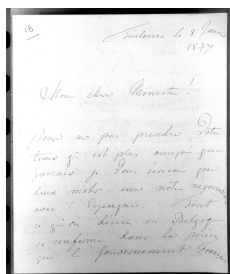 18
le 8 Janvier
1877
Mon cher Ministre!
Pour ne pas prendre Votre
tems qui est plus occupé que
jamais je Vous écrirai que
deux mots sur notre négociation
avec l'Espagne. Tout
ce qu'on désire en Belgique
se renferme dans la
que le Gouvernement